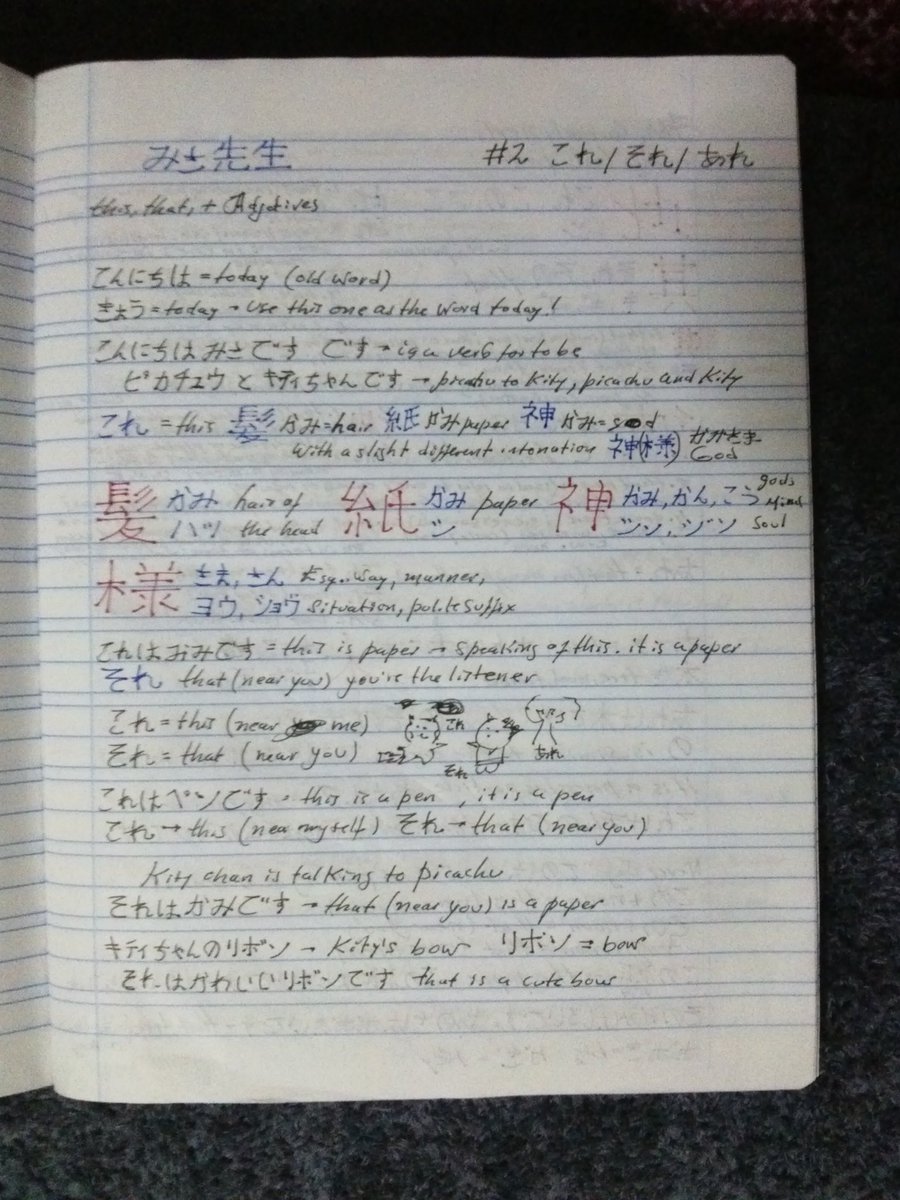 みさ先生 #2 これ/それ/あれ
this, that, + Adjetives
こんにちは = today (old word)
きょう = today → use this one as the word today!
こんにちはみさです です → is a verb for to be
ピカチュウとキティちゃんです → picachu to Kity, picachu and Kity
これ = this 髪 かみ = hair 紙 かみ paper 神 かみ = god
with a slight different intonation 神(様) かみさま God
髪 かみ ハツ hair of the head 紙 かみ シ paper 神 かみ, かん, こう シン, ジン gods Mind Soul
様 さま, さん way, manner,
ヨウ, ショウ situation, polite suffix
これはおみです = this is paper → speaking of this. it is a paper
それ that (near you) you're the listener
これ = this (near me) これ
それ = that (near you) それ あれ
これはペンです = this is a pen, it is a pen
これ → this (near myself) それ → that (near you)
Kity chan is talking to picachu
それはかみです → that (near you) is a paper
キティちゃんのリボン → Kity's bow リボン = bow
それはかわいいリボンです that is a cute bow